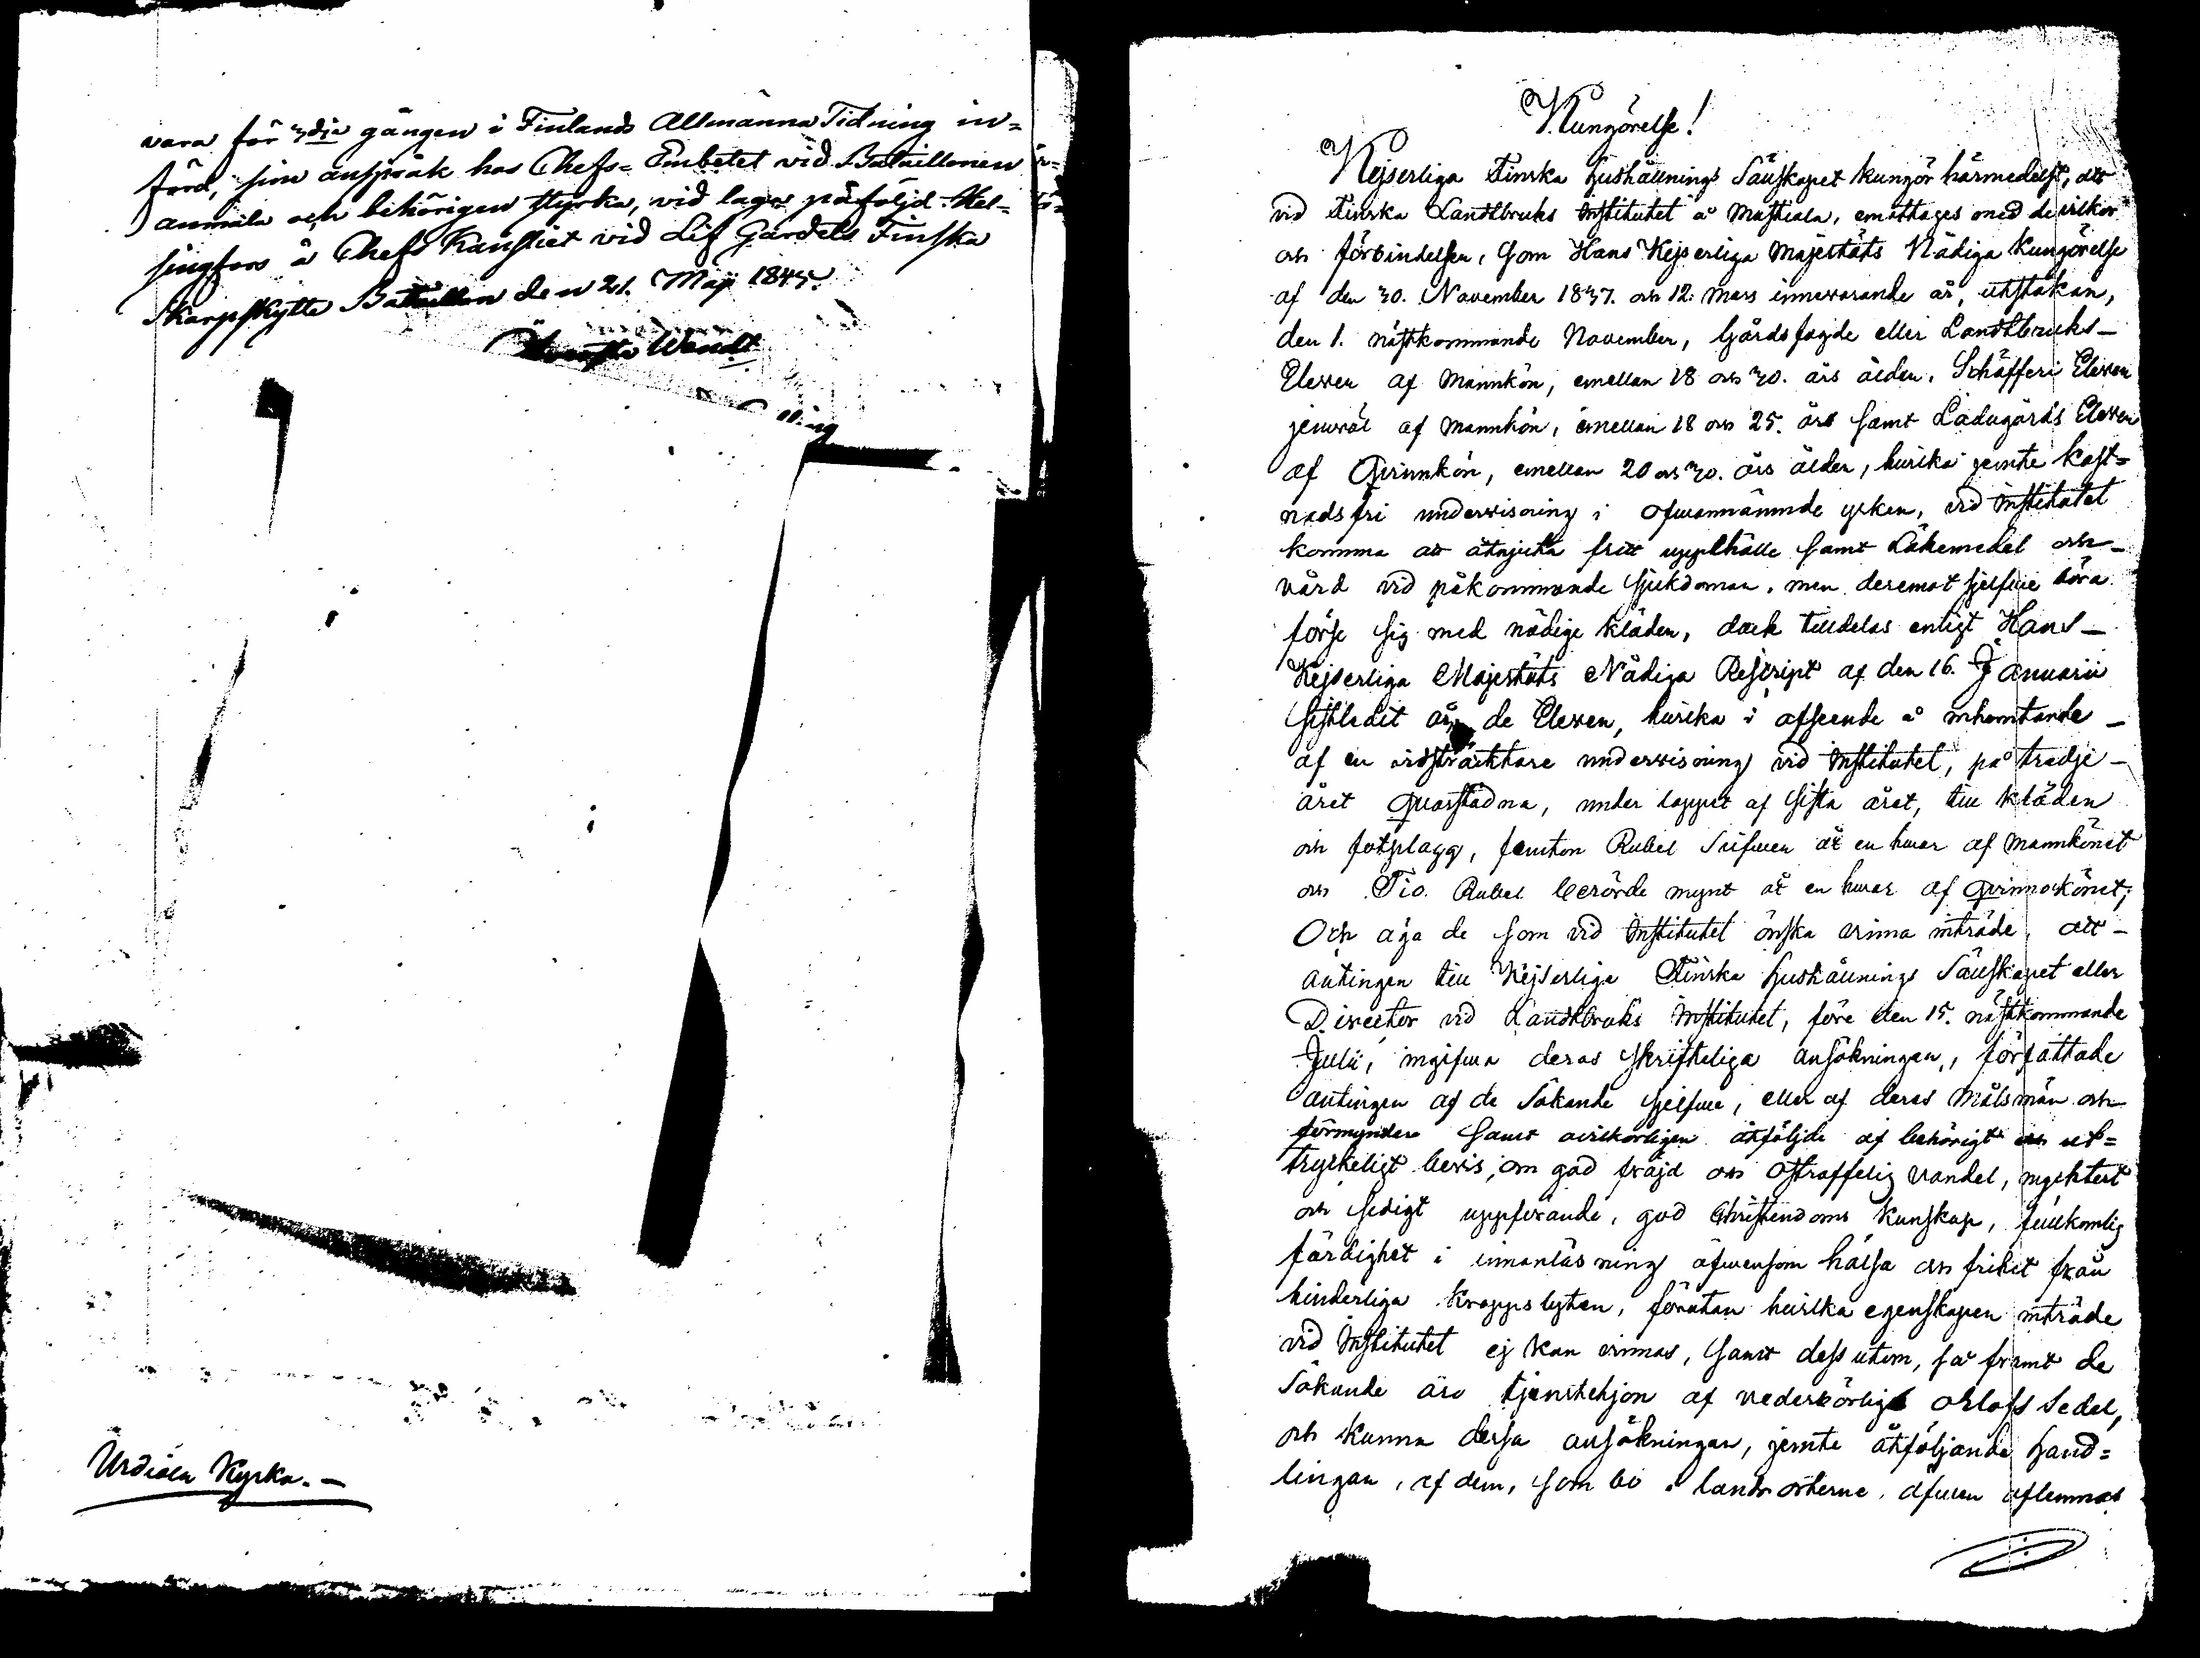 vara för 3die gången i Finlands Allmänna Tidning in=
förd, sine anspråk hos Chefs=Embetet vid Bataillonen
anmäla och behörigen styrka, vid laga påföljd. Hel=
singfors å Chefs Kansliet vid Lif Gardets Finska
Skarpskytte Bataillon den 21. Maji 1845.
Wendt
Urdiala Kyrka. —
Kungörelse!
Kejserliga Finska Hushållnings Sällskapet kungör härmedelst, att
vid Finska Landtbruks Institutet å Mustiala, emottages med de vilkor
och förbindelser, som Hans Kejserliga Majestäts Nådiga Kungörelse
af den 30. November 1837. och 12. Mars innevarande år, utstakan,
den 1. nästkommande November, Gårdsfogde eller Landtbruks—
Elever af Mannkön, emellan 18 och 30. års ålder, Schäfferi Elever
jemväl af Mannkön, emellan 18 och 25. års samt Ladugårds Elever
af Qvinnkön, emellan 20 och 30. års ålder, hvilka jemte kost=
nadsfri undervisning i ofvannämnde yrken, vid Institutet
komma att åtnjuta fritt uppehälle samt Läkemedel och—
vård vid påkommande sjukdomar, men deremot sjelfve böra
förse sig med nödige kläder, dock tilldelas enligt Hans—
Kejserliga Majestäts Nådiga Rescript af den 16. Januarii
sistledit år, de Elever, hvilka i afseende å inhemtande—
af en vidsträcktare undervisning vid Institutet, på tredje—
året qvarstadna, under loppet af sista året, till kläder
och fotplagg, femton Rubel Silfver åt en hvar af Mannkönet
och Tio Rubel berörde mynt åt en hvar af qvinnokönet;
Och äga de som vid Institutet önska vinna inträde, att—
antingen till Kejserliga Finska Hushållnings Sällskapet eller
Director vid Landtbruks Institutet, före den 15. nästkommande
Julii, ingifva deras skrifteliga ansökningar, författade
antingen af de Sökande sjelfve, eller af deras Målsmän och
förmyndare samt ovilkorligen åtföljde af behörigt och ut=
tryckeligt bevis, om god frejd och ostraffelig vandel, nycktert
och sedigt uppförande, god Christendoms kunskap, fullkomlig
färdighet i innanläsning äfvensom hälsa och frihet från
hinderliga Kroppslyten, förutan hvilka egenskaper inträde
vid Institutet ej kan vinnas, samt dess utom, så framt de
Sökande äro tjenstehjon af vederbörlig Orlofs Sedel,
och kunna dessa ansökningar, jemte åtföljande Hand=
lingar, af dem, som bo i landsorterne, äfven aflemnas